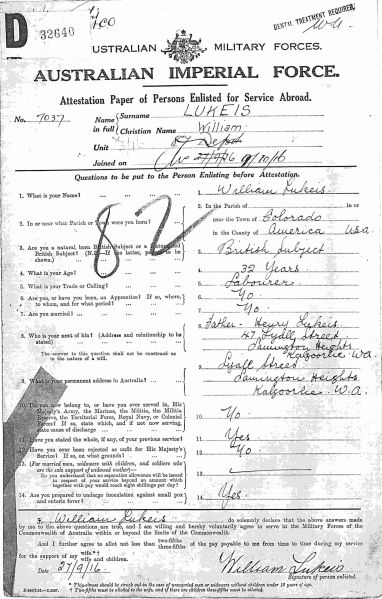 D 32640
DENTAL TREATMENT REQUIRED.
W.A.
AUSTRALIAN MILITARY FORCES.
AUSTRALIAN IMPERIAL FORCE.
Attestation Paper of Persons Enlisted for Service Abroad.
No. 7037 Name in full Surname LUKEIS
Christian Name William
Unit Depot
Joined on 9/10/16
Questions to be put to the Person Enlisting before Attestation.
82
1. What is your Name? 1. William Lukeis
2. In or near what Parish or Town were you born? 2. In the Parish of in or
near the Town of Colorado
in the County of America USA
3. Are you a natural born British Subject or a Naturalized
British Subject? (N.B.—If the latter, papers to be
shown.) 3. British Subject
4. What is your Age? 4. 32 Years
5. What is your Trade or Calling? 5. Labourer
6. Are you, or have you been, an Apprentice? If so, where,
to whom, and for what period? 6. No
7. Are you married? 7. No
8. Who is your next of kin? (Address and relationship to be
stated) 8. Father - Henry Lukeis
47 Lyall Street
Lamington Heights
Kalgoorlie. W.A.
The answer to this question shall not be construed as
in the nature of a will.
9. What is your permanent address in Australia? 9. Lyall Street
Lamington Heights
Kalgoorlie. W.A.
10. Do you now belong to, or have you ever served in, His
Majesty's Army, the Marines, the Militia, the Militia
Reserve, the Territorial Force, Royal Navy, or Colonial
Forces? If so, state which, and if not now serving,
state cause of discharge 10. No
11. Have you stated the whole, if any, of your previous service? 11. Yes
12. Have you ever been rejected as unfit for His Majesty's
Service? If so, on what grounds? 12. No
13. (For married men, widowers with children, and soldiers who
are the sole support of widowed mother)—
Do you understand that no separation allowance will be issued
in respect of your service beyond an amount which
together with pay would reach eight shillings per day? 13.
14. Are you prepared to undergo inoculation against small pox
and enteric fever? 14. Yes.
I, William Lukeis do solemnly declare that the above answers made
by me to the above questions are true, and I am willing and hereby voluntarily agree to serve in the Military Forces of the
Commonwealth of Australia within or beyond the limits of the Commonwealth.
And I further agree to allot not less than two-fifths three-fifths of the pay payable to me from time to time during my service
for the support of my wife.* wife and children.
Date 27/9/16. William Lukeis
Signature of person enlisted.
*This clause should be struck out in the case of unmarried men or widowers without children under 18 years of age.
†Two-fifths must be allotted to the wife, and if there are children three-fifths must be allotted.